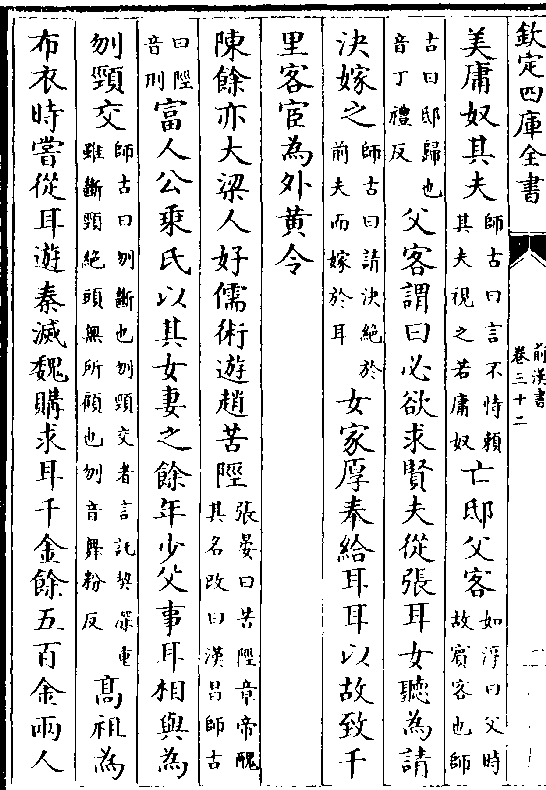 欽定四庫全書
前漢書
卷三十二
二
美庸奴其夫師古曰言不恃賴其夫視之若庸奴亡邸父客如淳曰父時故賓客也師
古曰邸歸也音丁禮反父客謂曰必欲求賢夫從張耳女聽為請
決嫁之師古曰請決絕於前夫而嫁於耳女家厚奉給耳耳以故致千
里客宦為外黄令
陳餘亦大梁人好儒術遊趙苦陘張晏曰苦陘章帝醜其名改曰漢昌師古
曰陘音刑富人公乘氏以其女妻之餘年少父事耳相與為
刎頸交師古曰刎斷也刎頸交者言託契深重雖斷頸絕頭無所顧也刎音舞粉反髙祖為
布衣時嘗從耳遊秦滅魏購求耳千金餘五百金兩人